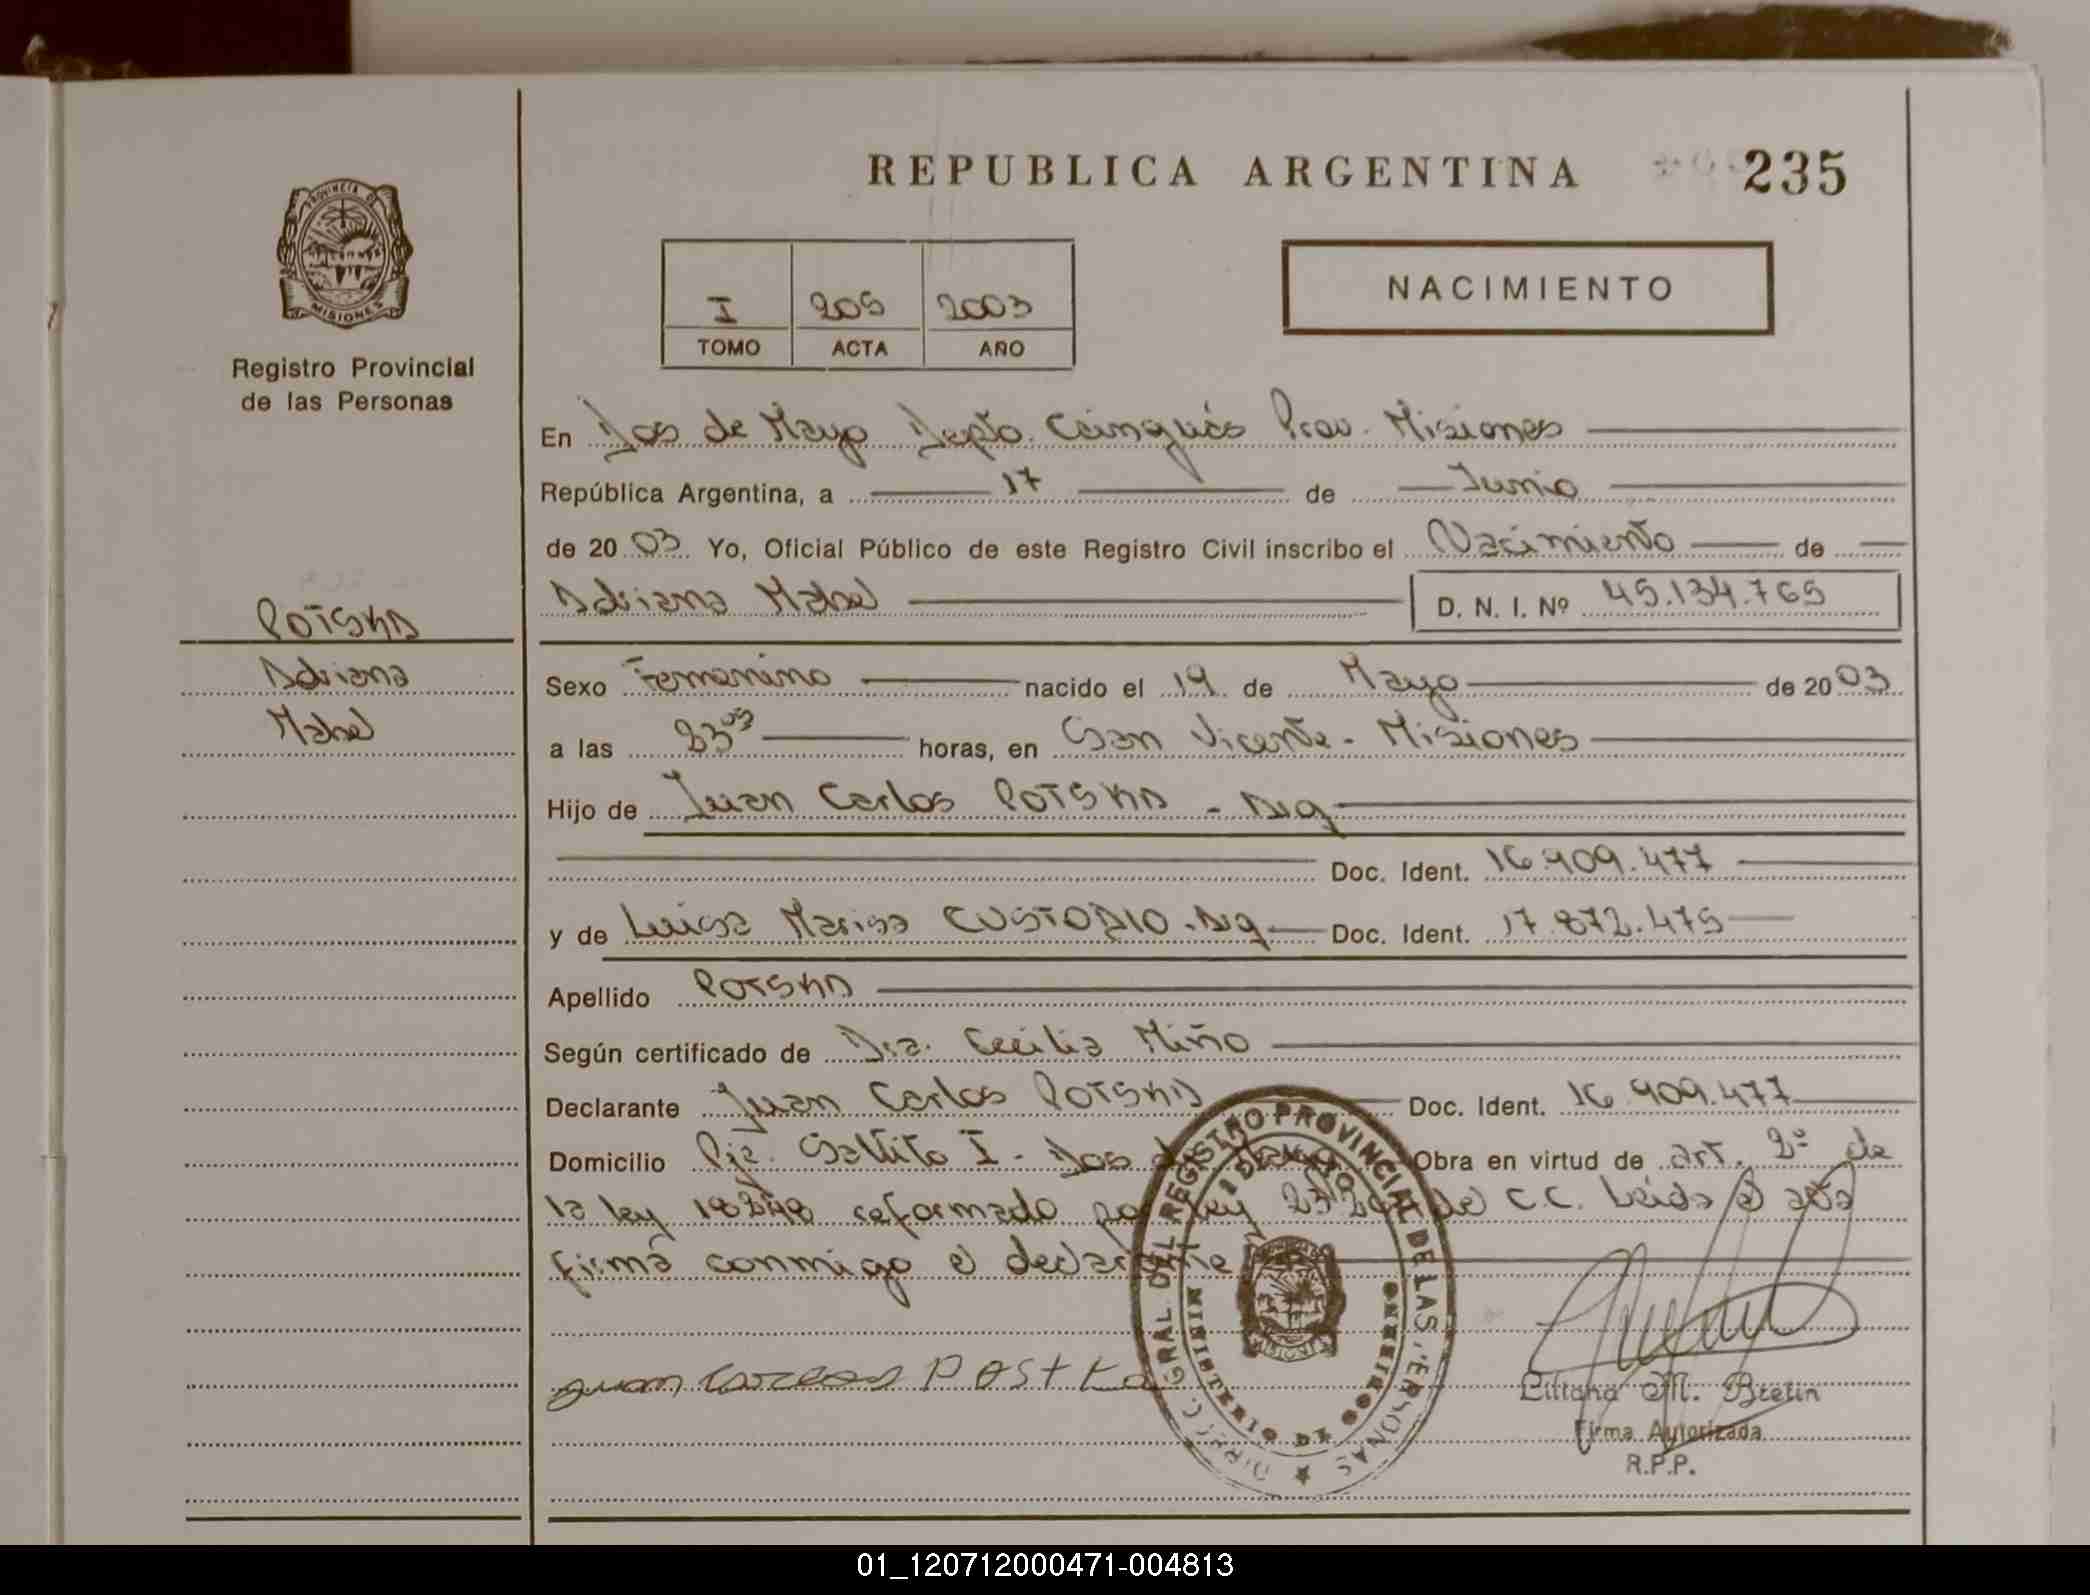 REPUBLICA ARGENTINA 235
PROVINCIA DE
MISIONES
Registro Provincial
de las Personas
NACIMIENTO
I 205 2003
TOMO ACTA AÑO
En Dos de Mayo Depto. Cainguás Prov. Misiones
República Argentina, a 17 de Junio
de 2003. Yo, Oficial Público de este Registro Civil inscribo el Nacimiento de
Adriana Mabel D. N. I. Nº 45.134.765
POTSKA
Adriana
Mabel
Sexo Femenino nacido el 19 de Mayo de 2003
a las 23 horas, en San Vicente - Misiones
Hijo de Juan Carlos POTSKA - Arg
Doc. Ident. 16.909.477
y de Luisa Marisa CUSTODIO - Arg Doc. Ident. 17.872.475
Apellido POTSKA
Según certificado de Dra. Cecilia Miño
Declarante Juan Carlos POTSKA Doc. Ident. 16.909.477
Domicilio Pje. Saltito I - Dos de Mayo Obra en virtud de art. 2º de
la ley 18248 reformado por ley de C.C. Leida el acta
firma conmigo el declarante
Juan Carlos POSTKA
DIRECC. GRAL. DEL REGISTRO PROVINCIAL DE LAS PERSONAS
MINISTERIO DE GOBIERNO
MISIONES
Liliana M. Bretin
Firma Autorizada
R.P.P.
01_120712000471-004813